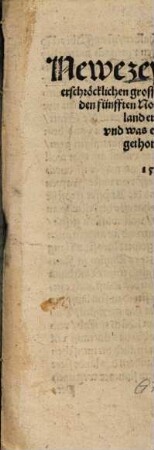 Neweze
erschröcklichen gross
den fünfften No
land er
vnd was e
gethon
15